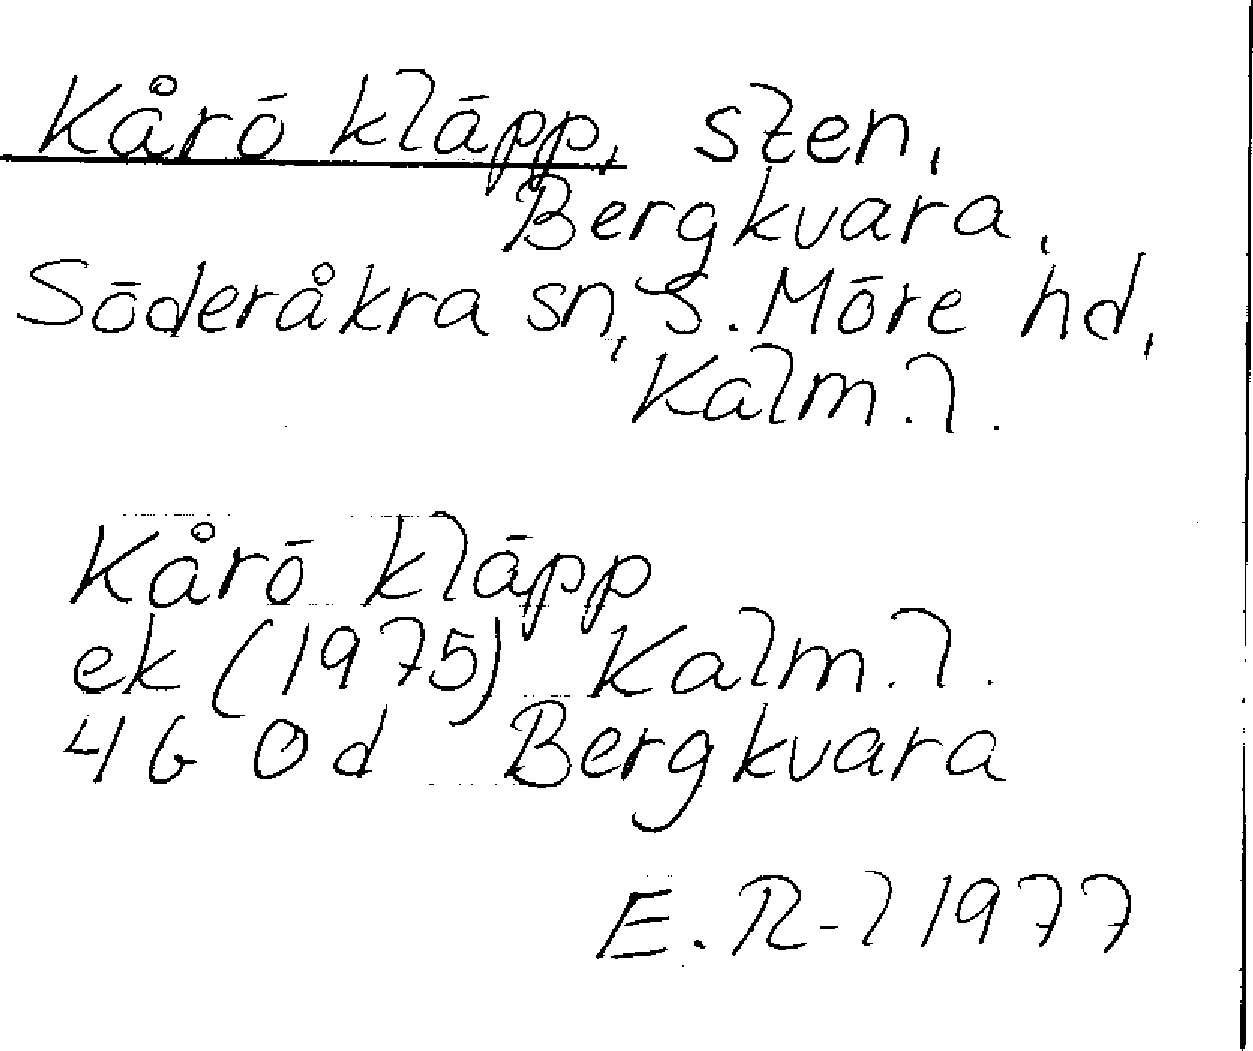 Kårö kläpp, sten,
Bergkvara,
Söderåkra sn, S. Möre hd,
Kalm. l.
Kårö kläpp
ek (1975) Kalm. l.
4G 0d Bergkvara
E. R-l 1977